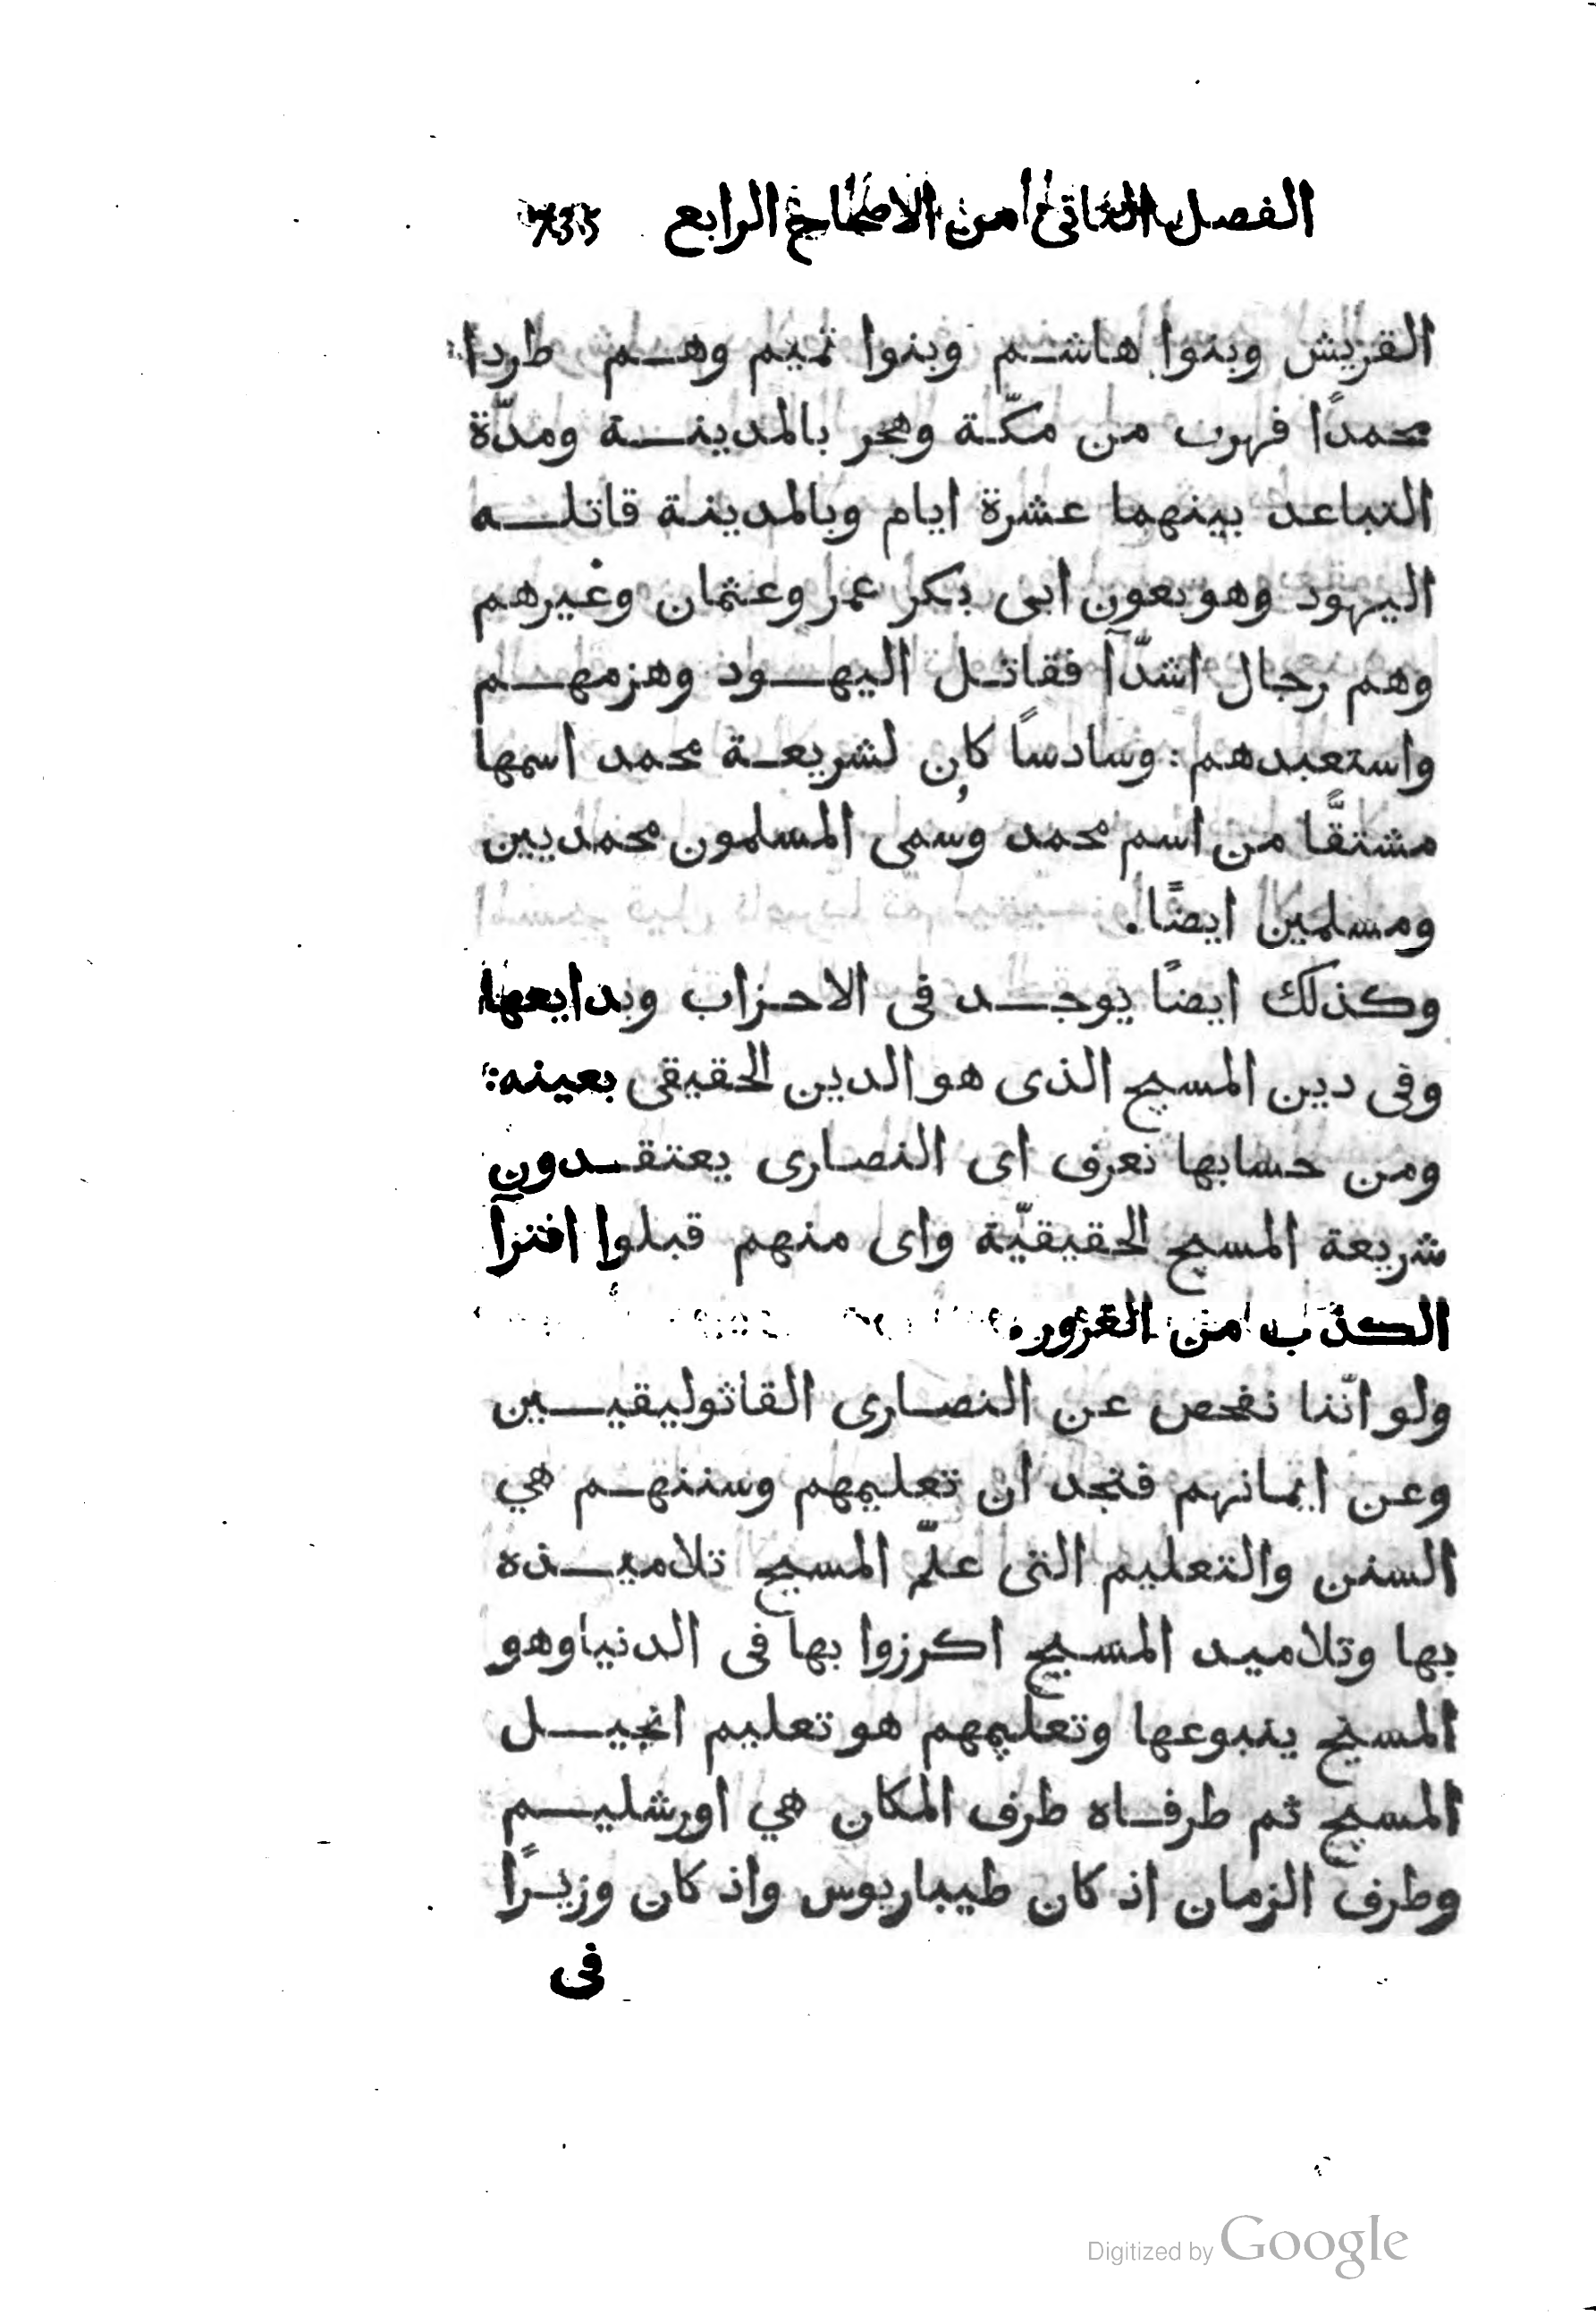 الفصل الثانى من الاصحاح الرابع 735
القريش وبنوا هاشم وبنوا تميم وهم طردا
محمدًا فهرب من مكّة وهجر بالمدينة ومدّة
التباعد بينهما عشرة ايام وبالمدينة قاتله
اليهود وهو بعون ابى بكر عمر وعثمان وغيرهم
وهم رجال اشدّآ فقاتل اليهود وهزمهم
واستعبدهم: وسادسًا كان لشريعة محمد اسمها
مشتقًّا من اسم محمد وسُمى المسلمون محمديين
ومسلمين ايضًا.
وكذلك ايضًا يوجد فى الاحزاب وبدايعها
وفى دين المسيح الذى هو الدين الحقيقى بعينه:
ومن حسابها نعرف اى النصارى يعتقدون
شريعة المسيح الحقيقيّة واى منهم قبلوا افترآ
الكذب من الغرور.
ولو انّنا نفحص عن النصارى القاثوليقيين
وعن ايمانهم فنجد ان تعليمهم وسننهم هي
السنن والتعليم التى علّم المسيح تلاميذه
بها وتلاميد المسيح اكرزوا بها فى الدنيا وهو
المسيح ينبوعها وتعليمهم هو تعليم انجيل
المسيح ثم طرفاه طرف المكان هي اورشليم
وطرف الزمان اذ كان طيباريوس واذ كان وزيرًا
فى
Digitized by Google